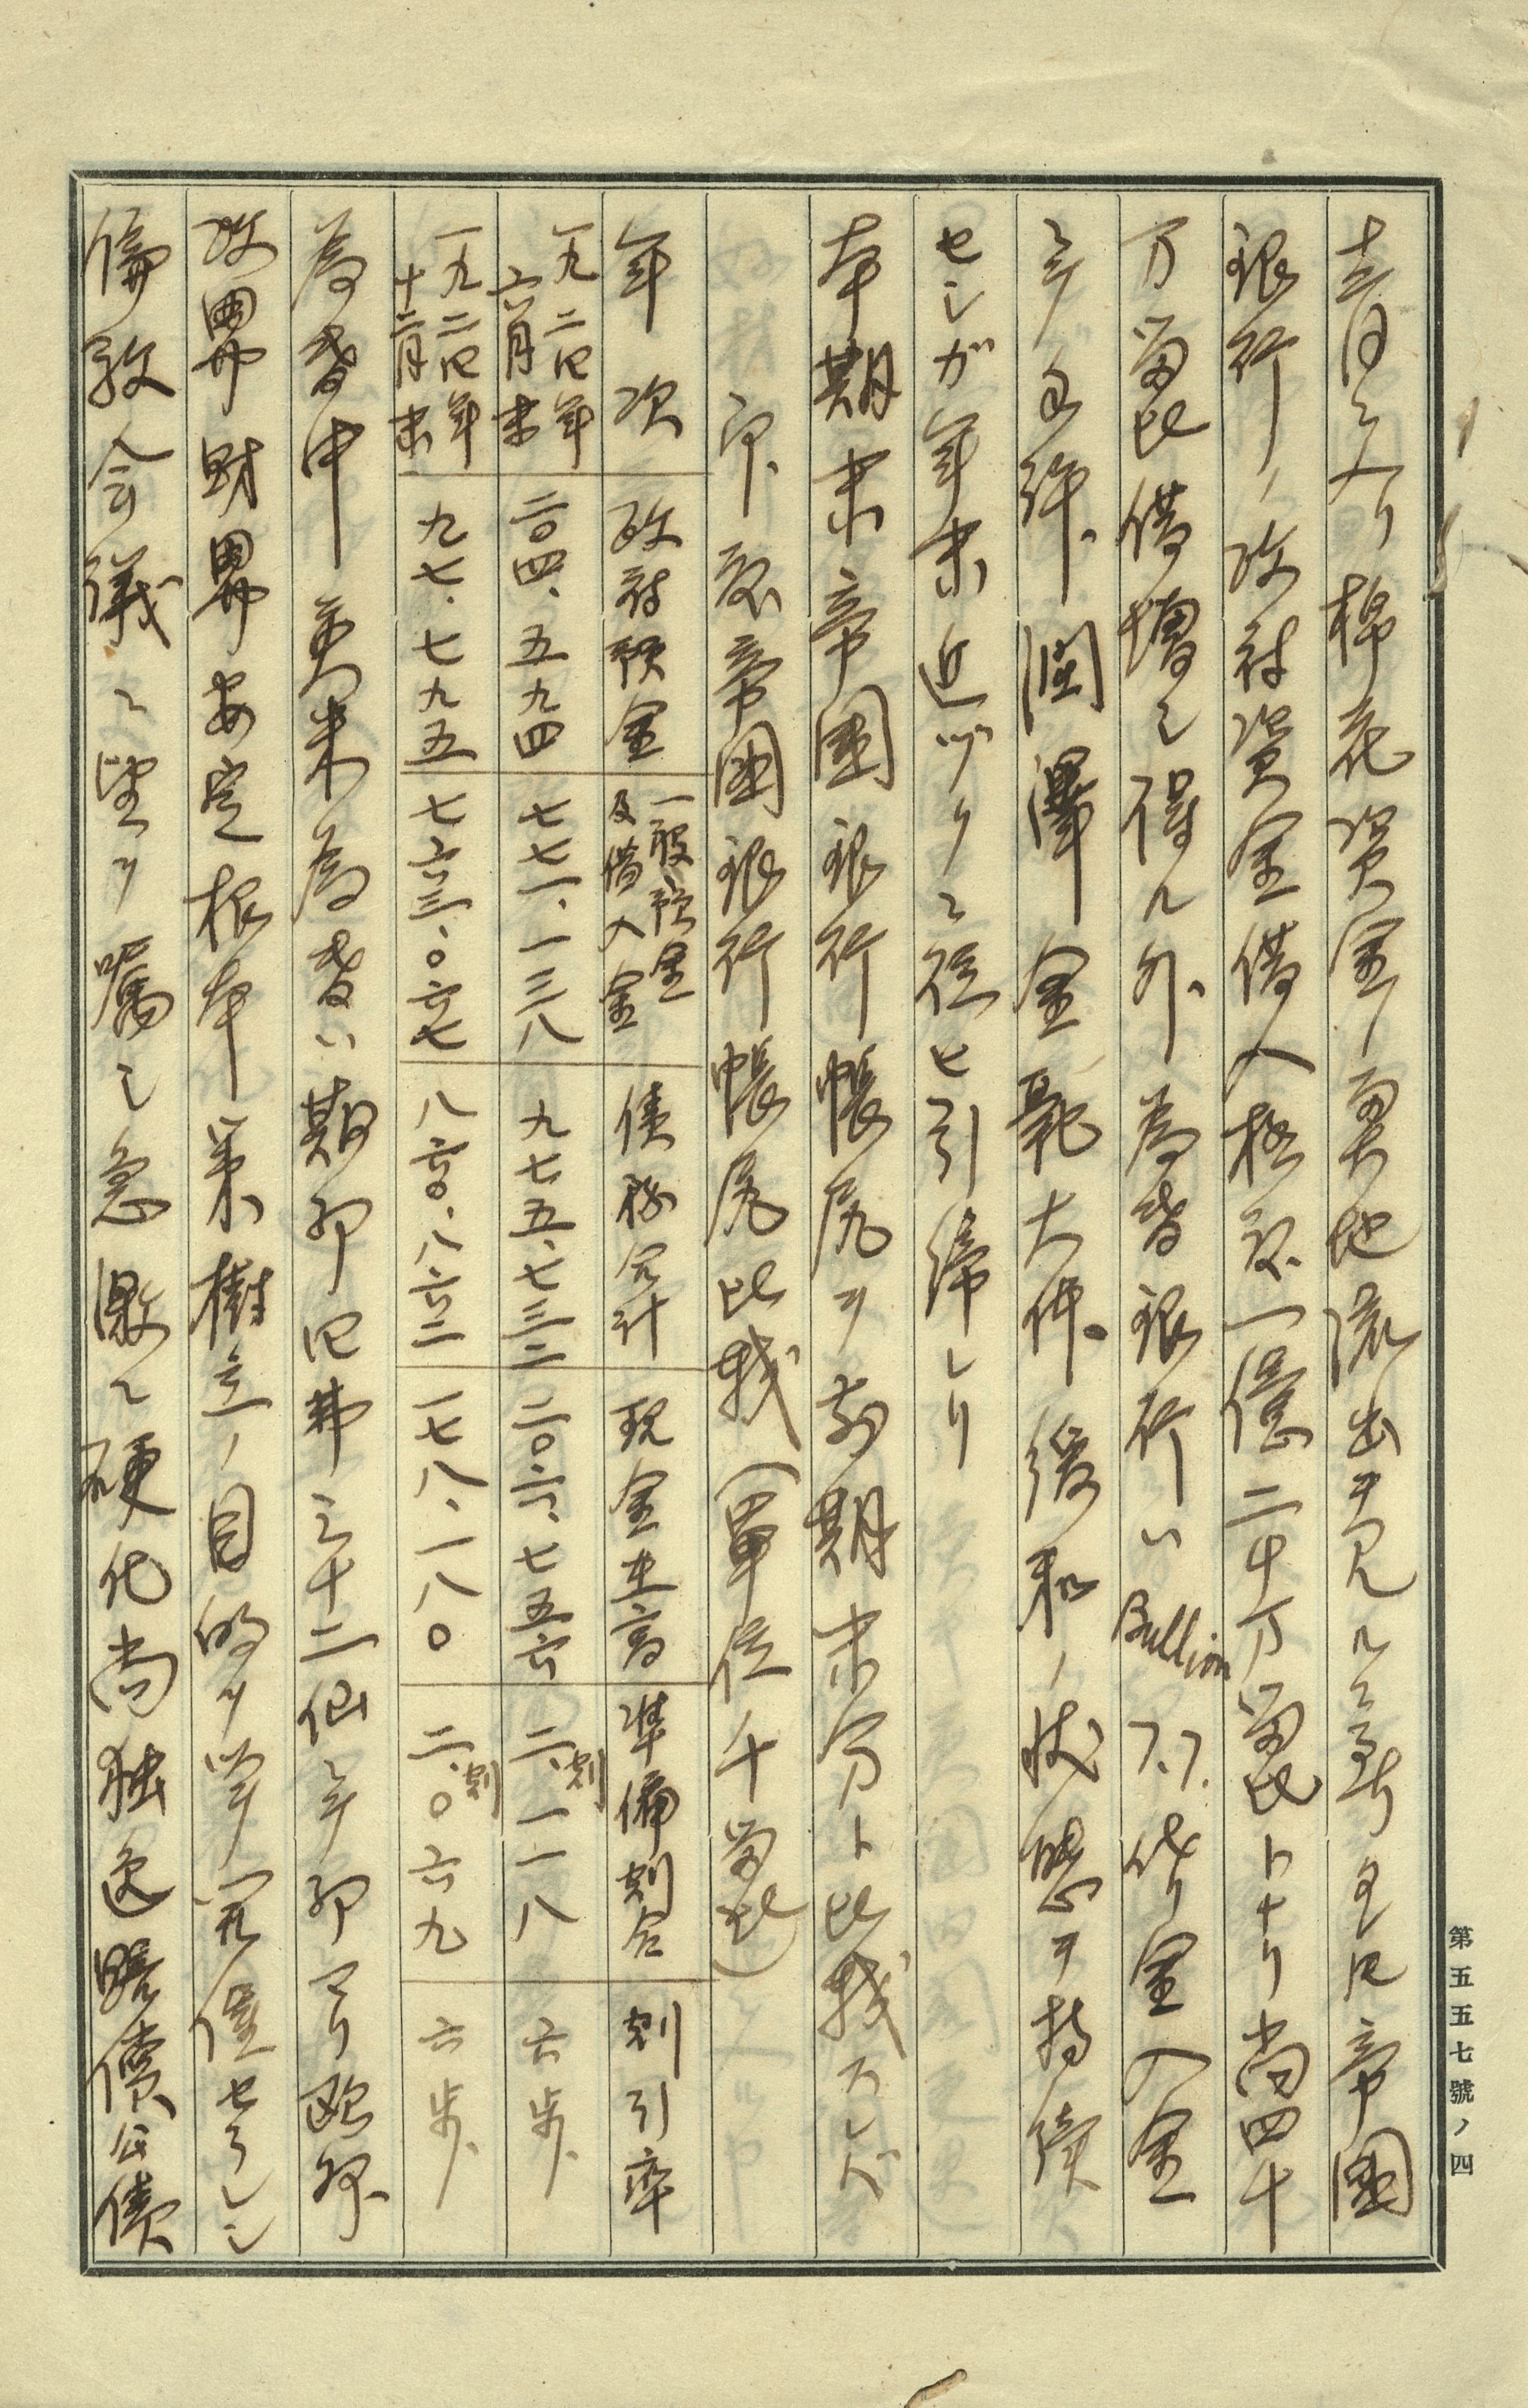 十二月ニ入リ棉花資金ノ奥地流出ヲ見ルニ至リ且ハ帝國
銀行ノ政府資金借入極度一億二千万留比トナリ尚四千
万留比借増シ得ル外、為替銀行ハ Bullion T.T. 代リ金入金
シテ手許潤澤金融大体緩和ノ状態ヲ持續
セシガ年末近ヅクニ從ヒ引締レリ
本期末帝國銀行帳尻ヲ前期末分ト比較スレバ
印度帝國銀行帳尻比較(單位千留比)
年次 政府預金 一般預金及借入金 債務合計 現金在高 準備割合 割引率
一九二四年六月末 二〇四、五九四 七七一、一三八 九七五、七三二 二〇六、七五六 二割、一一八 六歩、
一九二四年十二月末 九七、七九五 七六三、〇六七 八六〇、八六二 一七八、一八〇 二割、〇六九 六歩、
為替 英米為替ハ期初四弗三十二仙ニテ初マリ欧洲
政界財界安定根本策樹立ノ目的ヲ以テ開催セラレシ
倫敦会議ニ望ヲ囑シ急激ニ硬化尚独逸賠償公債
第五五七號ノ四